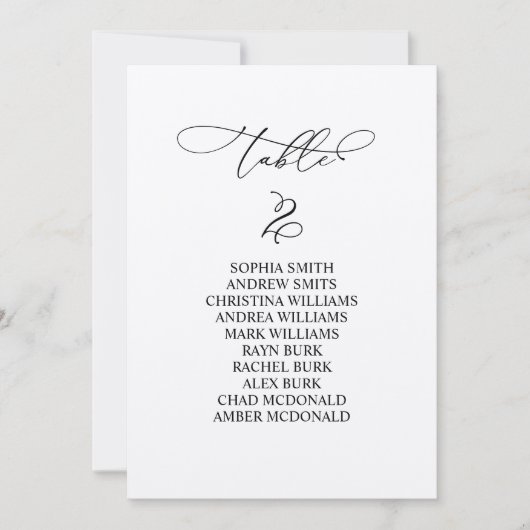 table
2
SOPHIA SMITH
ANDREW SMITS
CHRISTINA WILLIAMS
ANDREA WILLIAMS
MARK WILLIAMS
RAYN BURK
RACHEL BURK
ALEX BURK
CHAD MCDONALD
AMBER MCDONALD